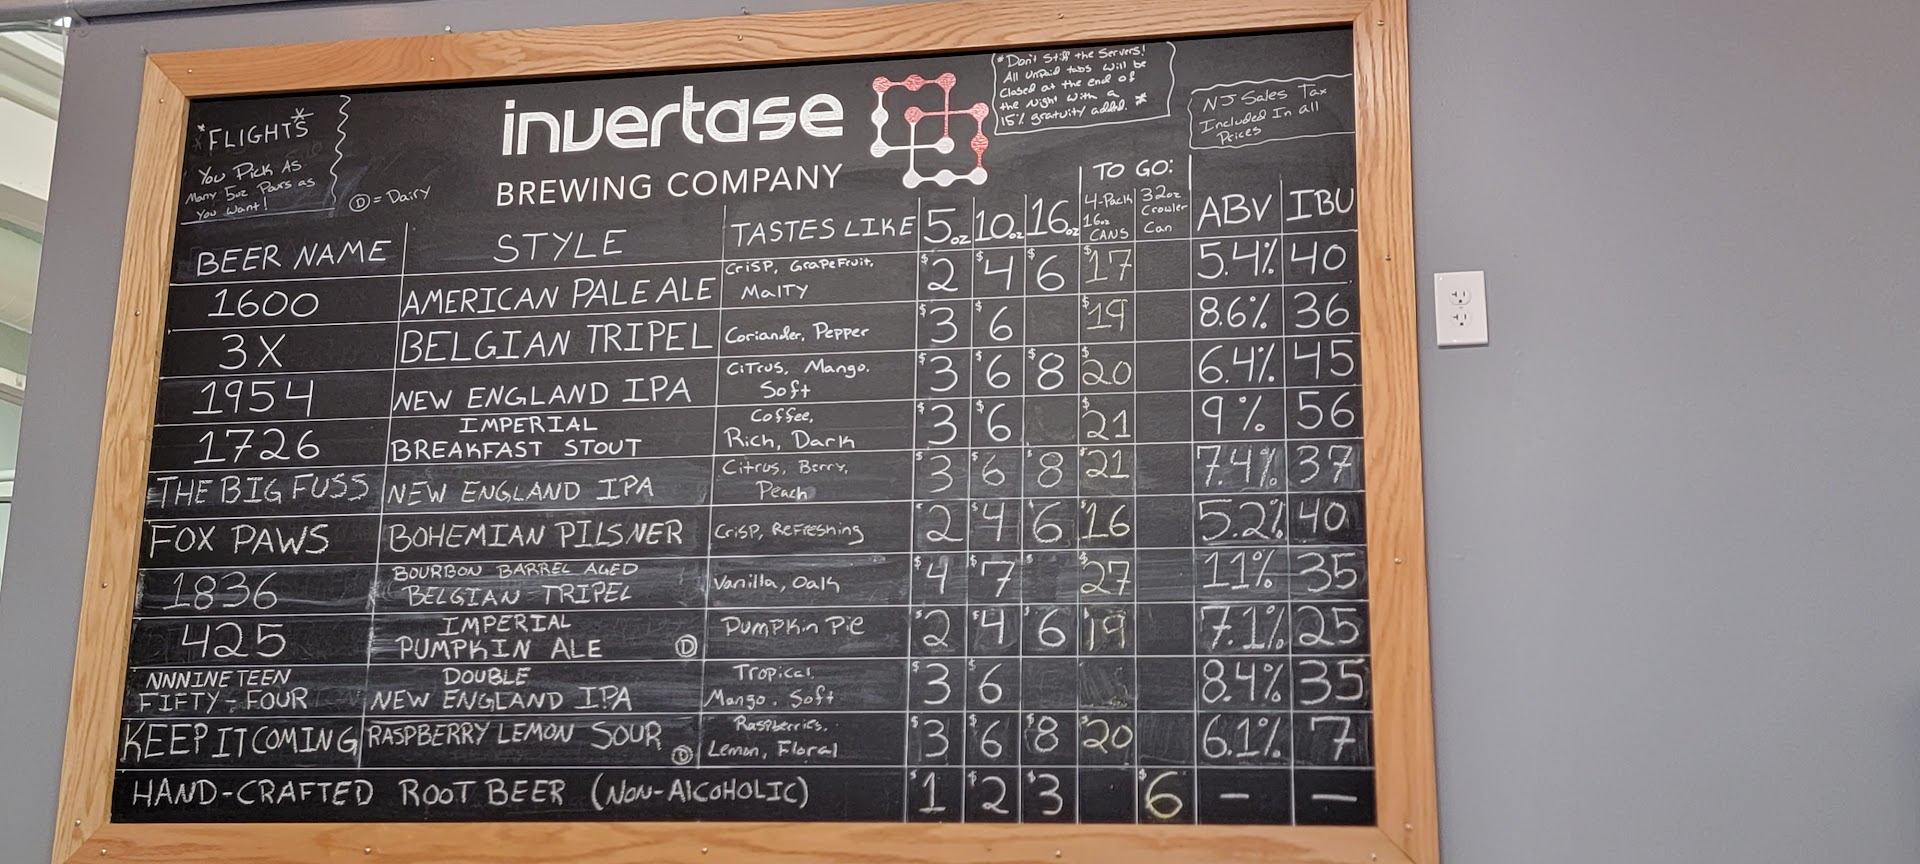 *FLIGHTS*
You Pick As
Many 5oz Pours as
You Want!
Ⓓ = Dairy
invertase
BREWING COMPANY
*Don't Stiff the Servers!
All Unpaid tabs will be
Closed at the end of
the Night with a
15% gratuity added. *
NJ Sales Tax
Included In all
Prices
TO GO:
BEER NAME STYLE TASTES LIKE 5oz 10oz 16oz 4-Pack 16oz CANS 32oz Crowler Can ABV IBU
1600 AMERICAN PALE ALE Crisp, Grapefruit, Malty $2 $4 $6 $17 5.4% 40
3X BELGIAN TRIPEL Coriander, Pepper $3 $6 $19 8.6% 36
1954 NEW ENGLAND IPA Citrus, Mango. Soft $3 $6 $8 $20 6.4% 45
1726 IMPERIAL BREAKFAST STOUT Coffee, Rich, Dark $3 $6 $21 9% 56
THE BIG FUSS NEW ENGLAND IPA Citrus, Berry, Peach $3 $6 $8 $21 7.4% 37
FOX PAWS BOHEMIAN PILSNER Crisp, Refreshing $2 $4 $6 $16 5.2% 40
1836 BOURBON BARREL AGED BELGIAN TRIPEL Vanilla, Oak $4 $7 $27 11% 35
425 IMPERIAL PUMPKIN ALE Ⓓ Pumpkin Pie $2 $4 $6 $19 7.1% 25
NNNINETEEN FIFTY-FOUR DOUBLE NEW ENGLAND IPA Tropical, Mango, Soft $3 $6 8.4% 35
KEEP IT COMING RASPBERRY LEMON SOUR Ⓓ Raspberries, Lemon, Floral $3 $6 $8 $20 6.1% 7
HAND-CRAFTED ROOT BEER (NON-AlCOHOLIC) $1 $2 $3 $6 — —